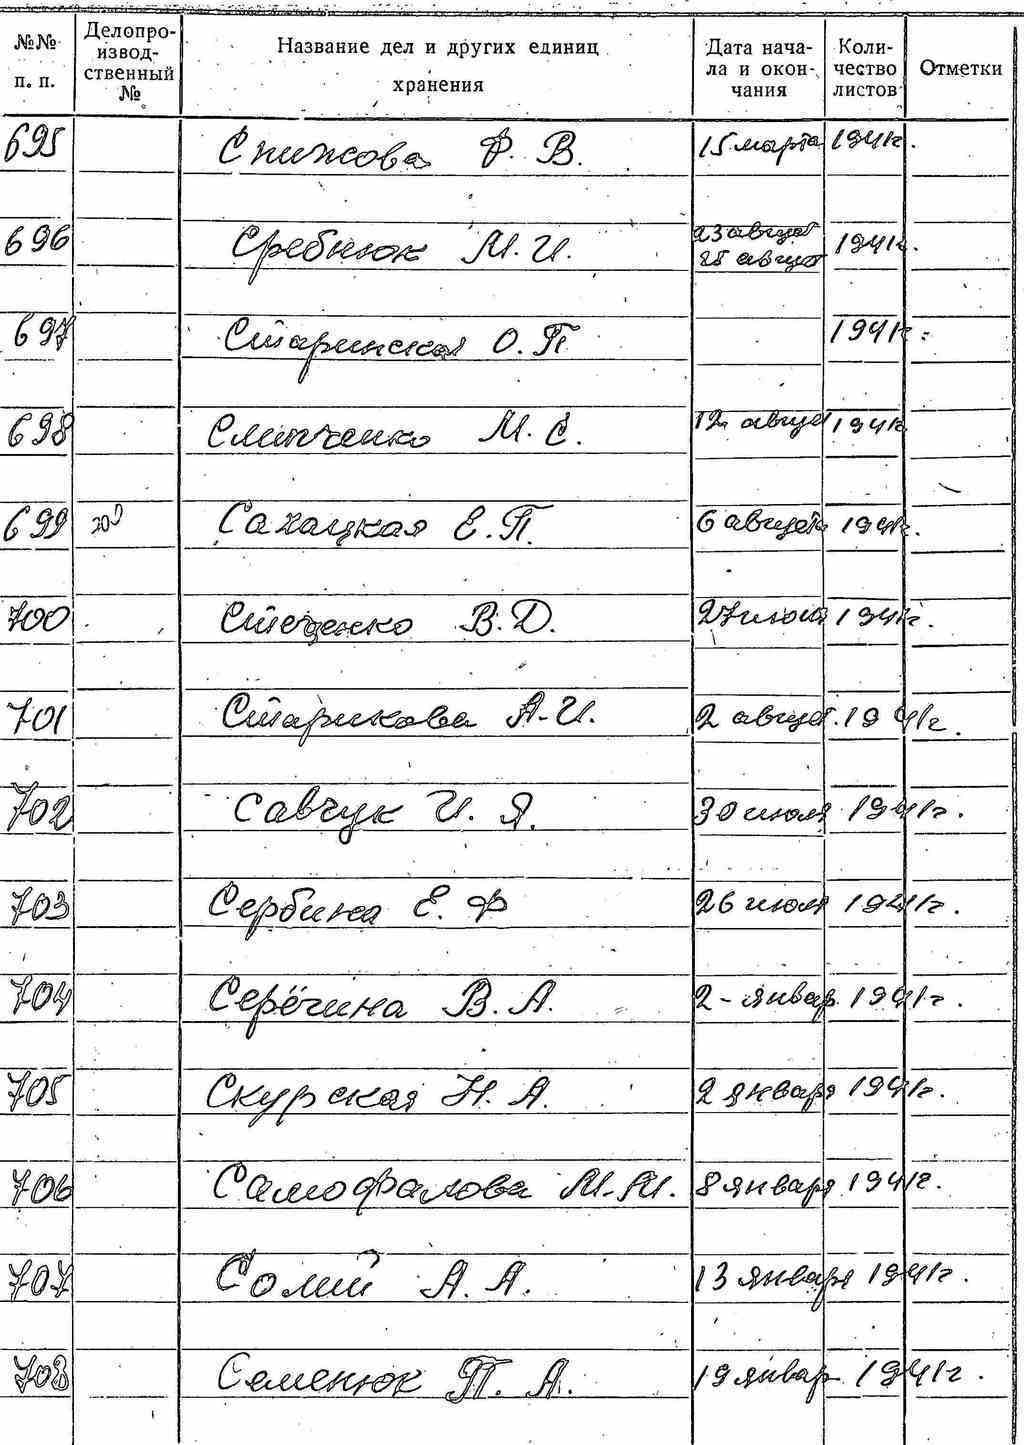 №№ п. п.
Делопроизвод-
ственный №
Название дел и других единиц хранения
Дата нача-
ла и окон-
чания
Коли-
чество
листов
Отметки
695 Снижова Ф. В. 15 марта 1941г.
696 Сребнюк М. И. 23 август 1941г.
28 август
697 Старинская О. П 1941г.
698 Слипченко М. С. 12 август 1941г
699 Сахацкая Е. П. 6 августа 1941г.
700 Стеценко В. Д. 27 июля 1941г.
701 Старикова А. И. 2 август. 1941г.
702 Савчук И. Я. 30 июля 1941г.
703 Сербина Е. Ф 26 июля 1941г.
704 Серёгина В. А. 2 - январ. 1941г.
705 Скурская Н. А. 2 января 1941г.
706 Самофалова М. М. 8 января 1941г.
707 Солий А. А. 13 января 1941г.
708 Семенюк П. А. 19 январ 1941г.